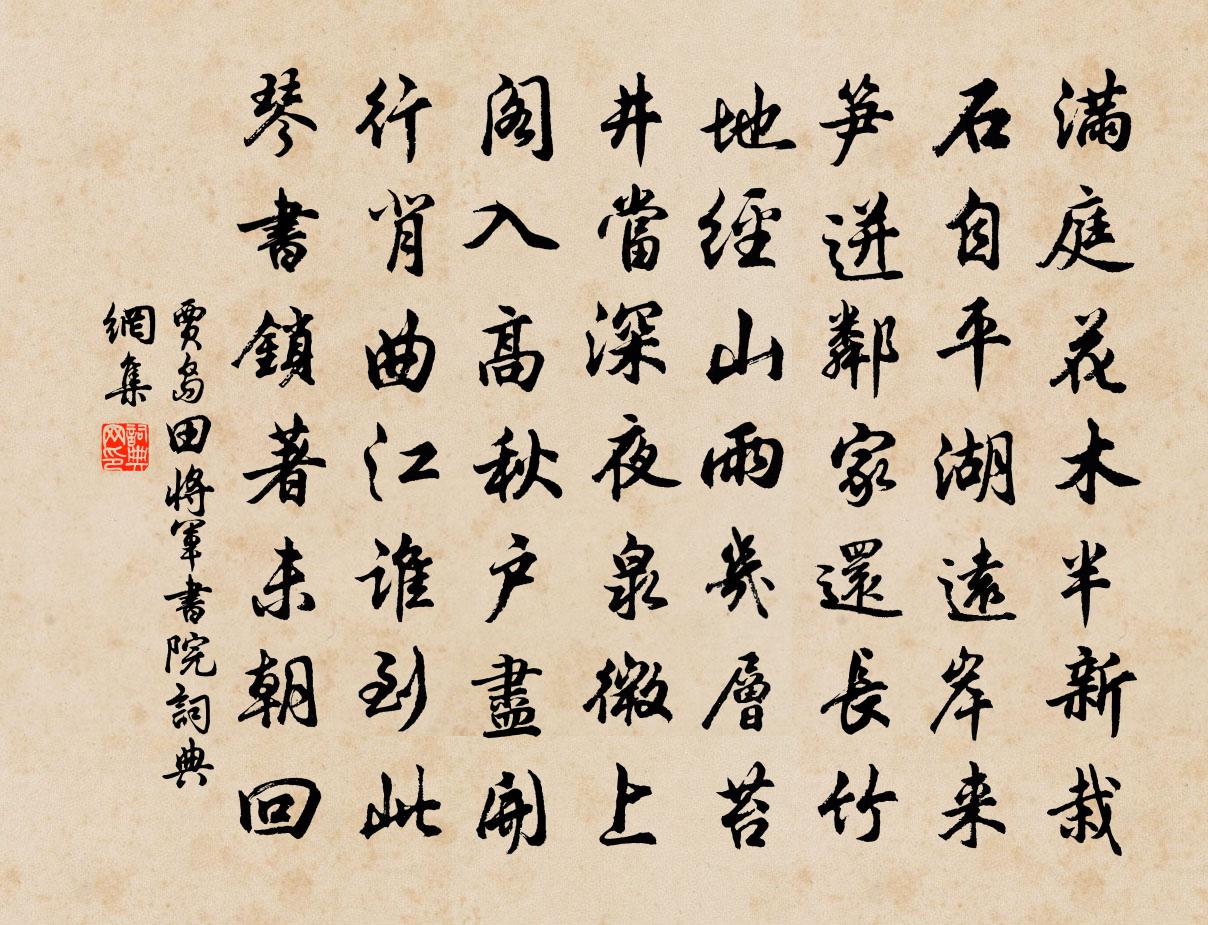 满庭花木半新栽
石自平湖远岸来
笋迸邻家还长竹
地经山雨几层苔
井当深夜泉微上
阁入高秋户尽开
行背曲江谁到此
琴书锁著未朝回
贾岛田将军书院词典
网集
词典网印